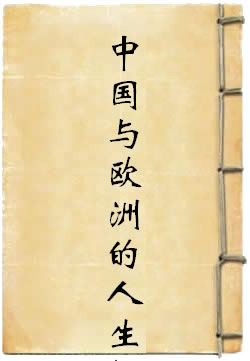 中国与欧洲的人生